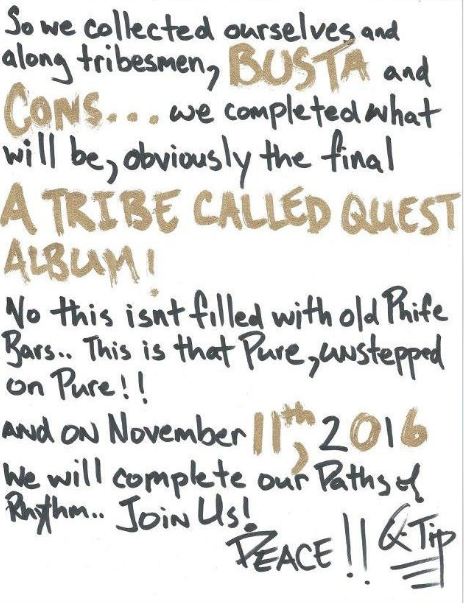 So we collected ourselves and
along tribesmen, BUSTA and
CONS... we completed what
will be, obviously the final
A TRIBE CALLED QUEST
ALBUM!
No this isnt filled with old Phife
Bars.. This is that Pure, unstepped
on Pure!!
AND ON November 11th, 2016
We will complete our Paths of
Rhythm.. Join Us!
PEACE!! Q-Tip